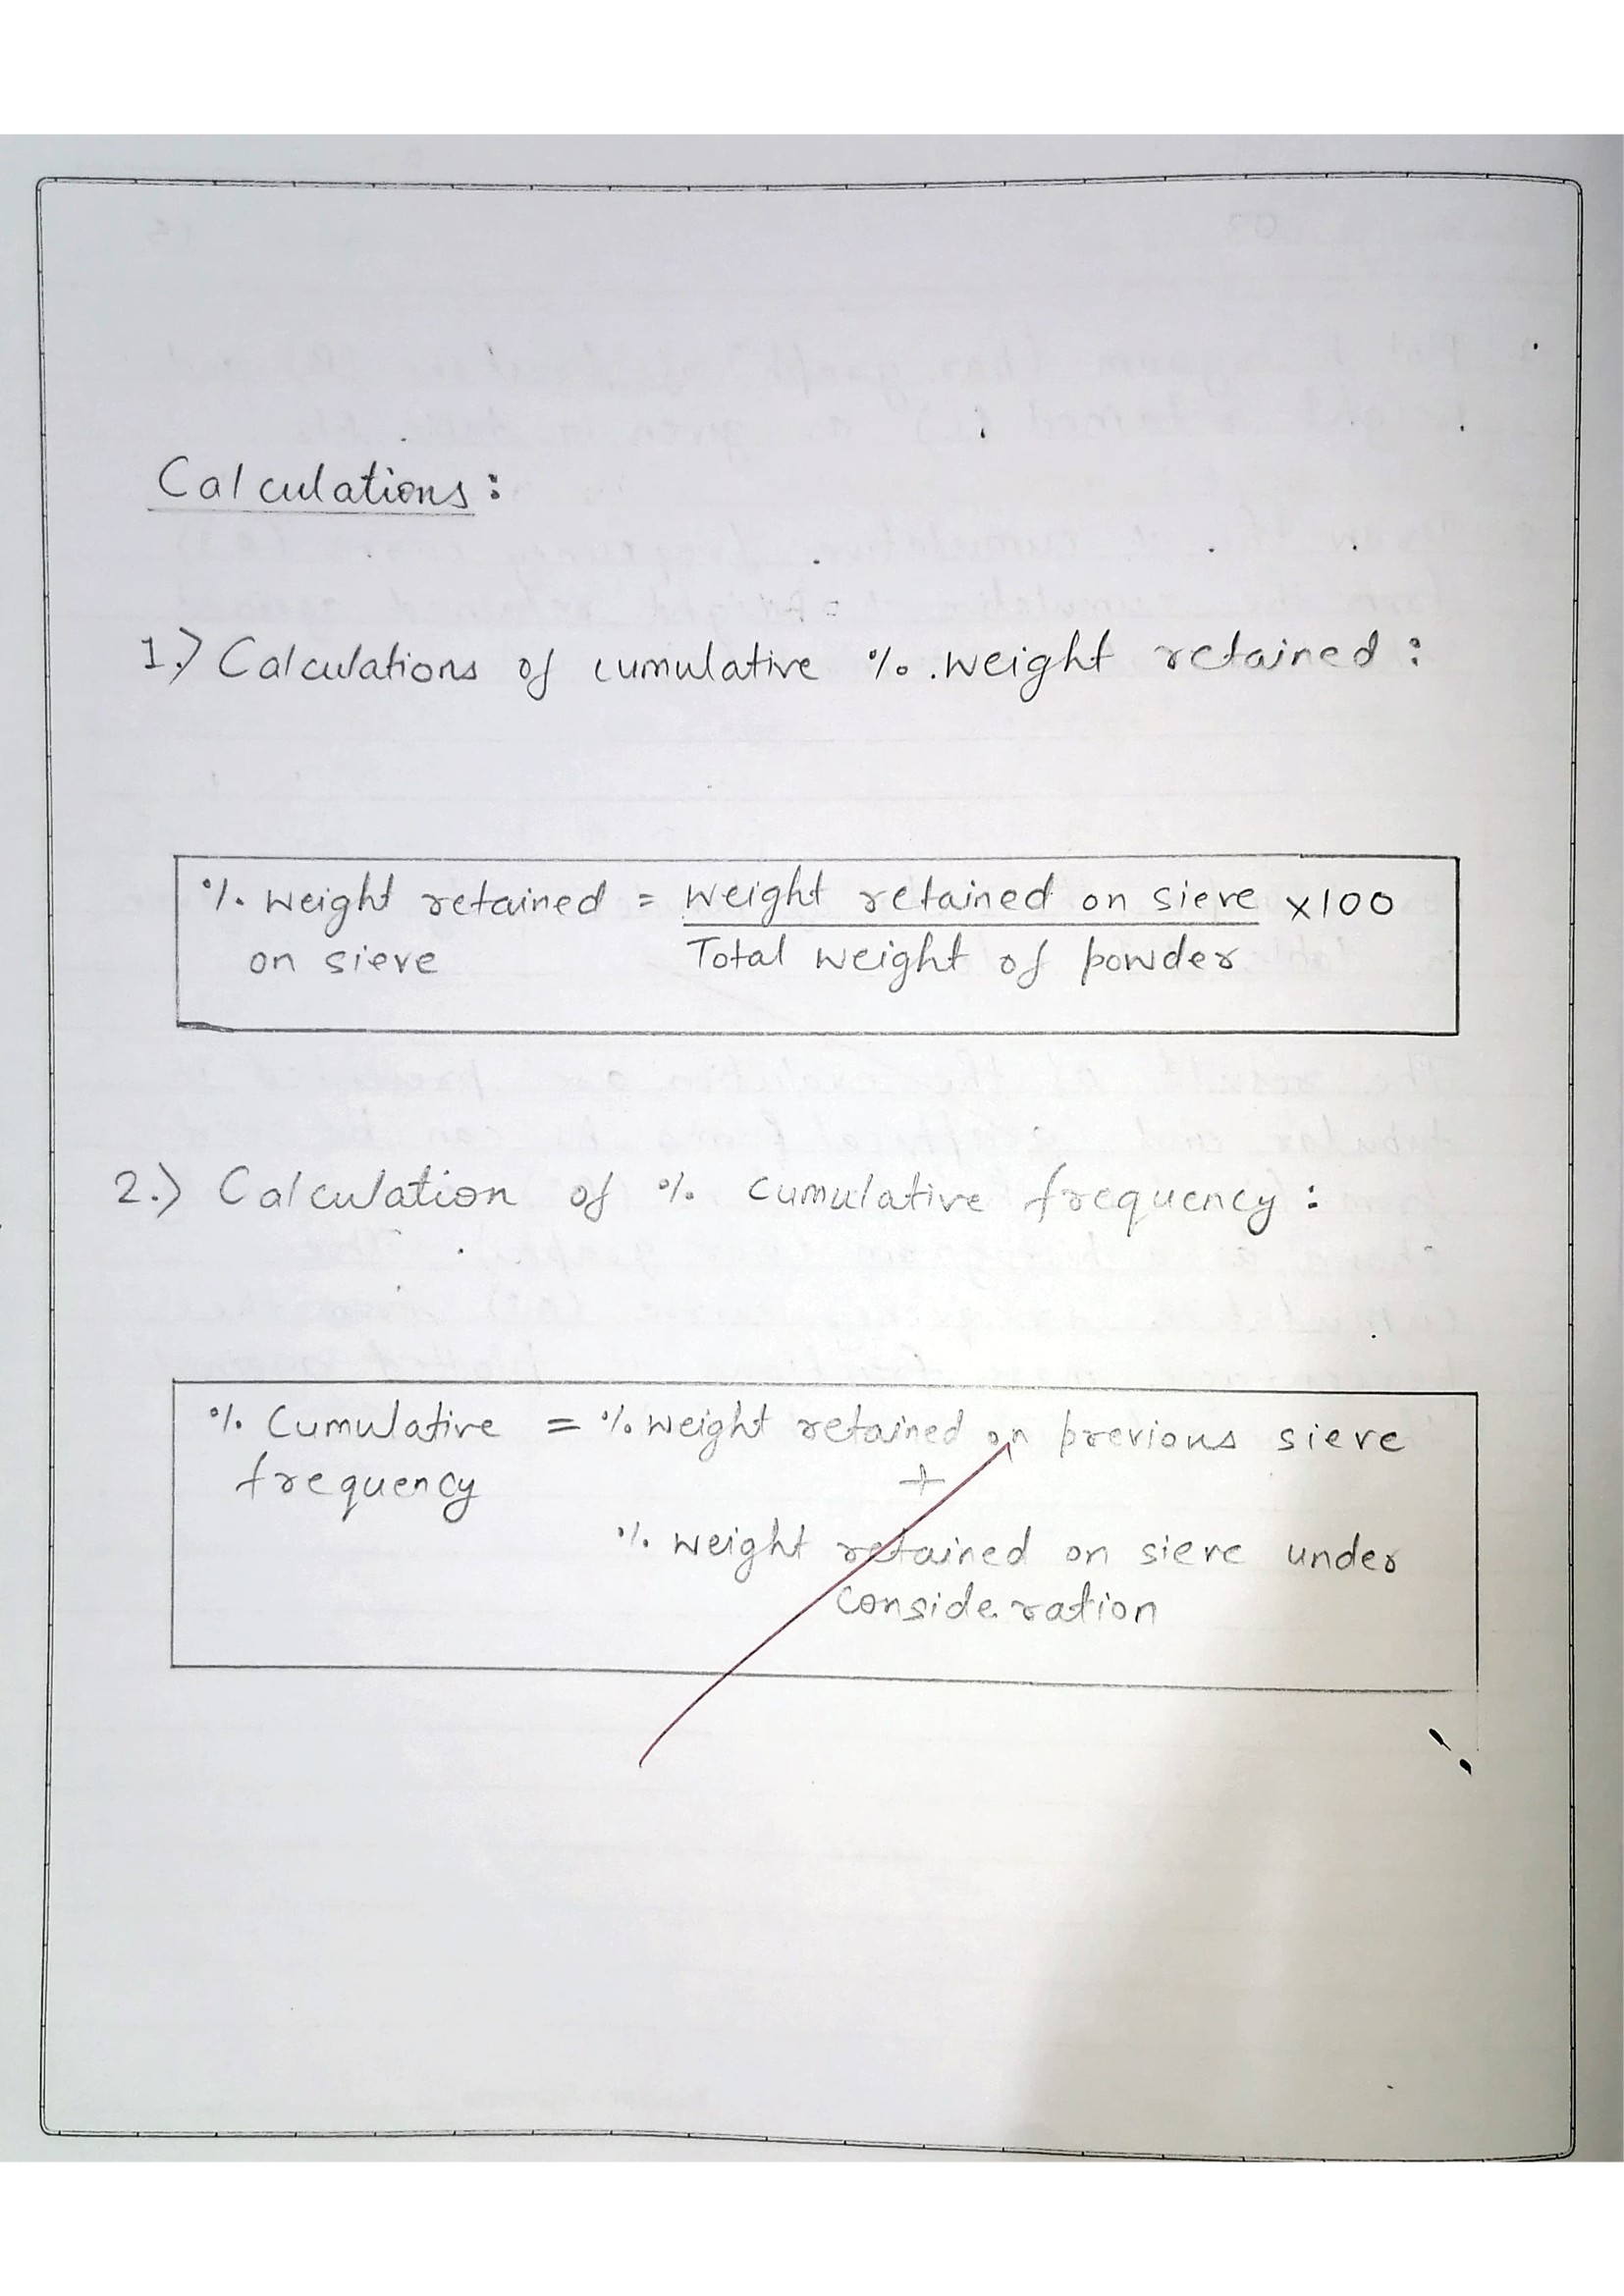 Calculations:
1.) Calculations of cumulative %. weight retained:
% weight retained = weight retained on sieve x100
on sieve Total weight of powder
2.) Calculation of % cumulative frequency:
% Cumulative = % weight retained on previous sieve
frequency +
% weight retained on sieve under
consideration